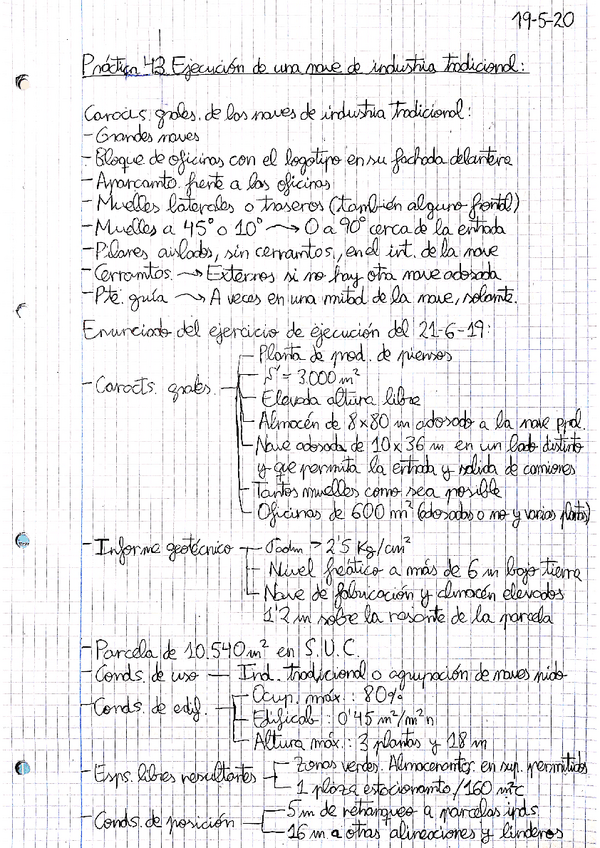 19-5-20
Práctica 43 Ejecución de una nave de industria tradicional:
Caracts. grales. de las naves de industria tradicional:
- Grandes naves
- Bloque de oficinas con el logotipo en su fachada delantera
- Aparcamto. frente a las oficinas
- Muelles laterales o traseros (también alguno frontal)
- Muelles a 45° o 10° → 0 a 90° cerca de la entrada
- Pilares aislados, sin cerramtos., en el int. de la nave
- Cerramtos. → Externos si no hay otra nave adosada
- Pte. grúa → A veces en una mitad de la nave, solamte.
Enunciado del ejercicio de ejecución del 21-6-19:
- Caracts. grales.
- Planta de prod. de piensos
- S = 3.000 m²
- Elevada altura libre
- Almacén de 8x80 m adosado a la nave ppal.
- Nave adosada de 10x36 m en un lado distinto
y que permita la entrada y salida de camiones
- Tantos muelles como sea posible
- Oficinas de 600 m² (adosadas o no y varias plantas)
- Informe geotécnico
- σadm > 2'5 Kg/cm²
- Nivel freático a más de 6 m bajo tierra
- Nave de fabricación y almacén elevados
1'2 m sobre la rasante de la parcela
- Parcela de 10.540 m² en S.U.C.
- Conds. de uso — Ind. tradicional o agrupación de naves nido
- Conds. de edif.
- Ocup. máx.: 80%
- Edificab.: 0'45 m²/m²n
- Altura máx.: 3 plantas y 18 m
- Esps. libres resultantes
- Zonas verdes. Almacenantos. en sup. permitidos
- 1 plaza estacionamto/160 m²c
- Conds. de posición
- 5 m de retranqueo a parcelas inds.
- 16 m a otras alineaciones y linderos